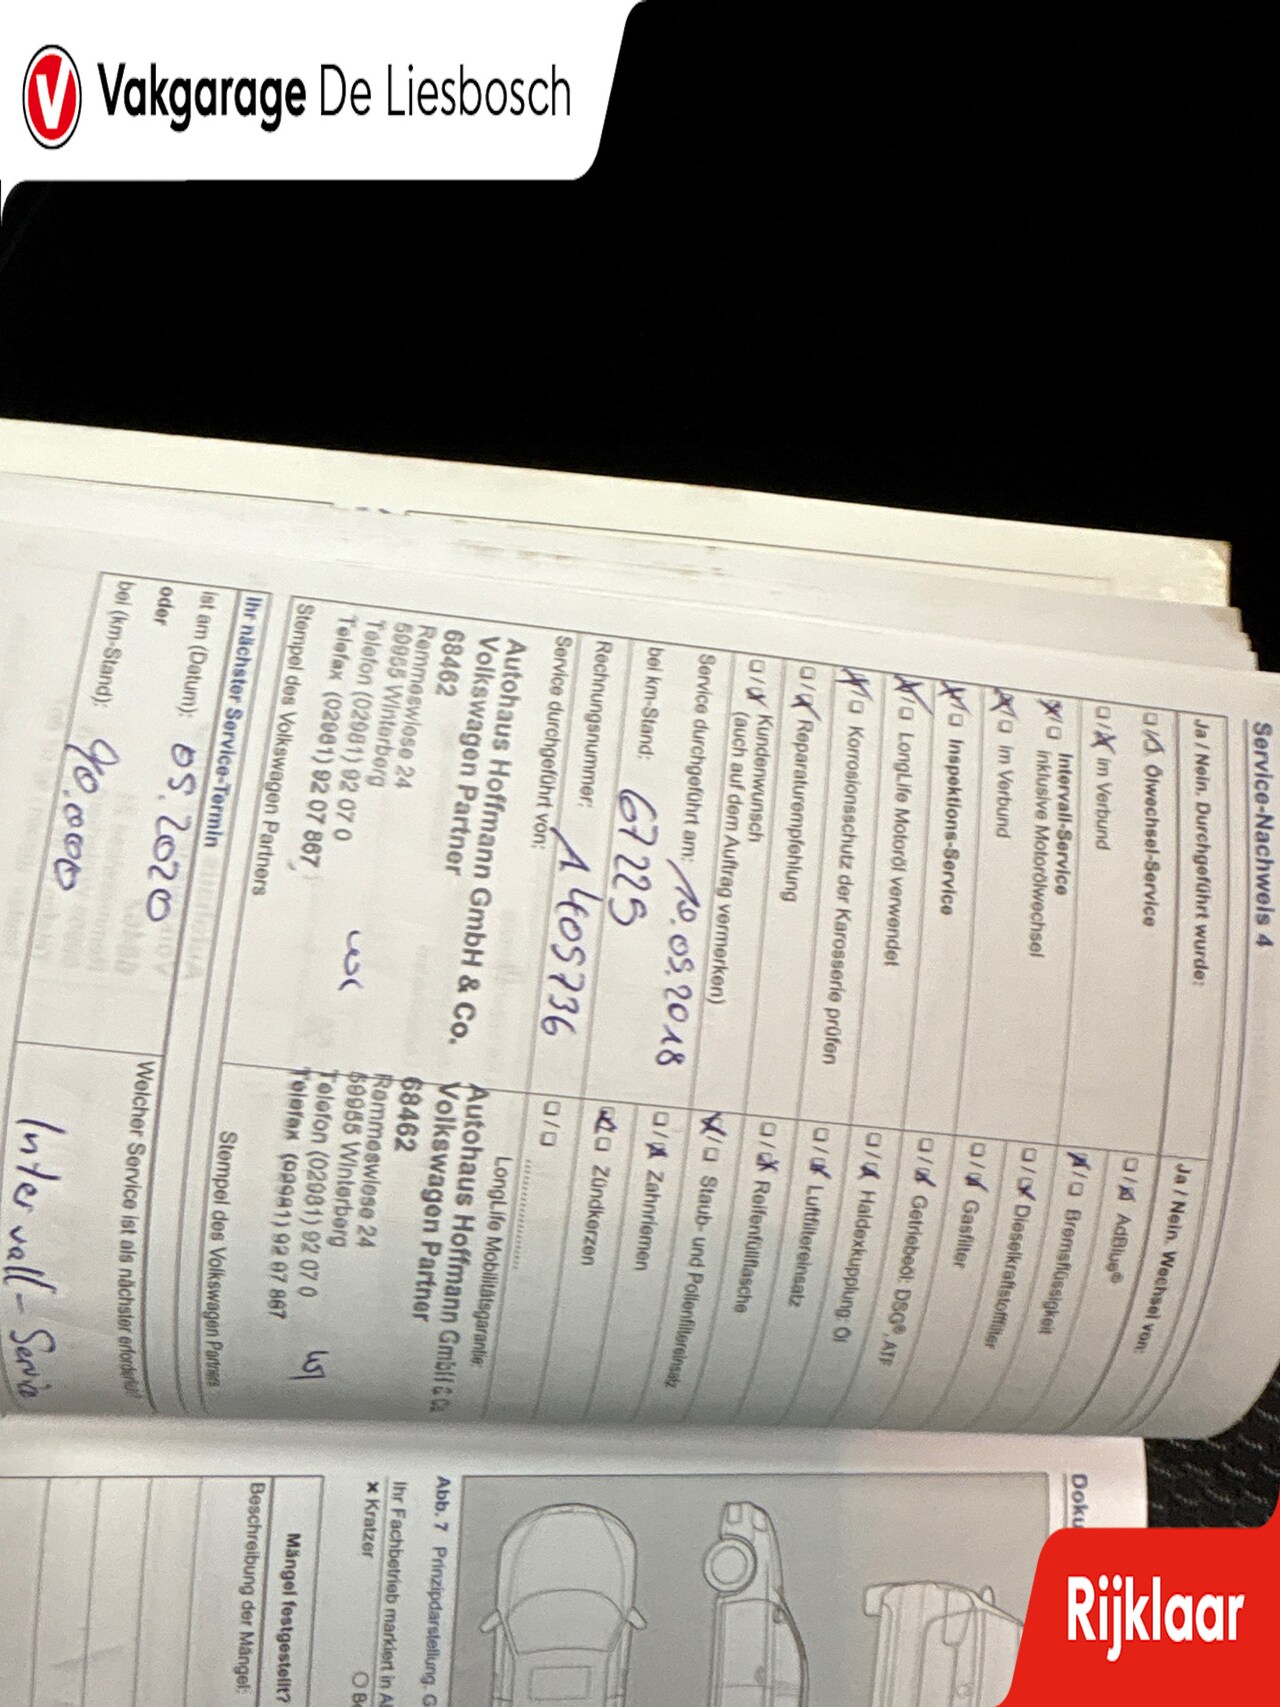 Vakgarage De Liesbosch
Service-Nachweis 4
Ja / Nein. Durchgeführt wurde:
Ölwechsel-Service
im Verbund
Intervall-Service
inklusive Motorölwechsel
im Verbund
Inspektions-Service
LongLife Motoröl verwendet
Korrosionsschutz der Karosserie prüfen
Reparaturempfehlung
Kundenwunsch
(auch auf dem Auftrag vermerken)
Service durchgeführt am: 10.09.2018
bei km-Stand: 67225
Rechnungsnummer: 1405736
Service durchgeführt von:
Autohaus Hoffmann GmbH & Co.
Volkswagen Partner
68462
Remmeswiese 24
59955 Winterberg
Telefon (02981) 92 07 0
Telefax (02981) 92 07 867
Stempel des Volkswagen Partners
Ja / Nein. Wechsel von:
AdBlue®
Bremsflüssigkeit
Dieselkraftstofffilter
Gasfilter
Getriebeöl: DSG®, ATF
Haldexkupplung: Öl
Luftfiltereinsatz
Reifenfüllflasche
Staub- und Pollenfiltereinsatz
Zahnriemen
Zündkerzen
LongLife Mobilitätsgarantie:
Autohaus Hoffmann GmbH & Co.
Volkswagen Partner
68462
Remmeswiese 24
59955 Winterberg
Telefon (02981) 92 07 0
Telefax (02981) 92 07 867
Stempel des Volkswagen Partners
Ihr nächster Service-Termin
ist am (Datum): 09.2020
oder
bei (km-Stand): 90.000
Welcher Service ist als nächster erforderlich?
Intervall-Service
Doku
Abb. 7 Prinzipdarstellung. G
Ihr Fachbetrieb markiert in A
× Kratzer
Mängel festgestellt?
Beschreibung der Mängel:
Rijklaar